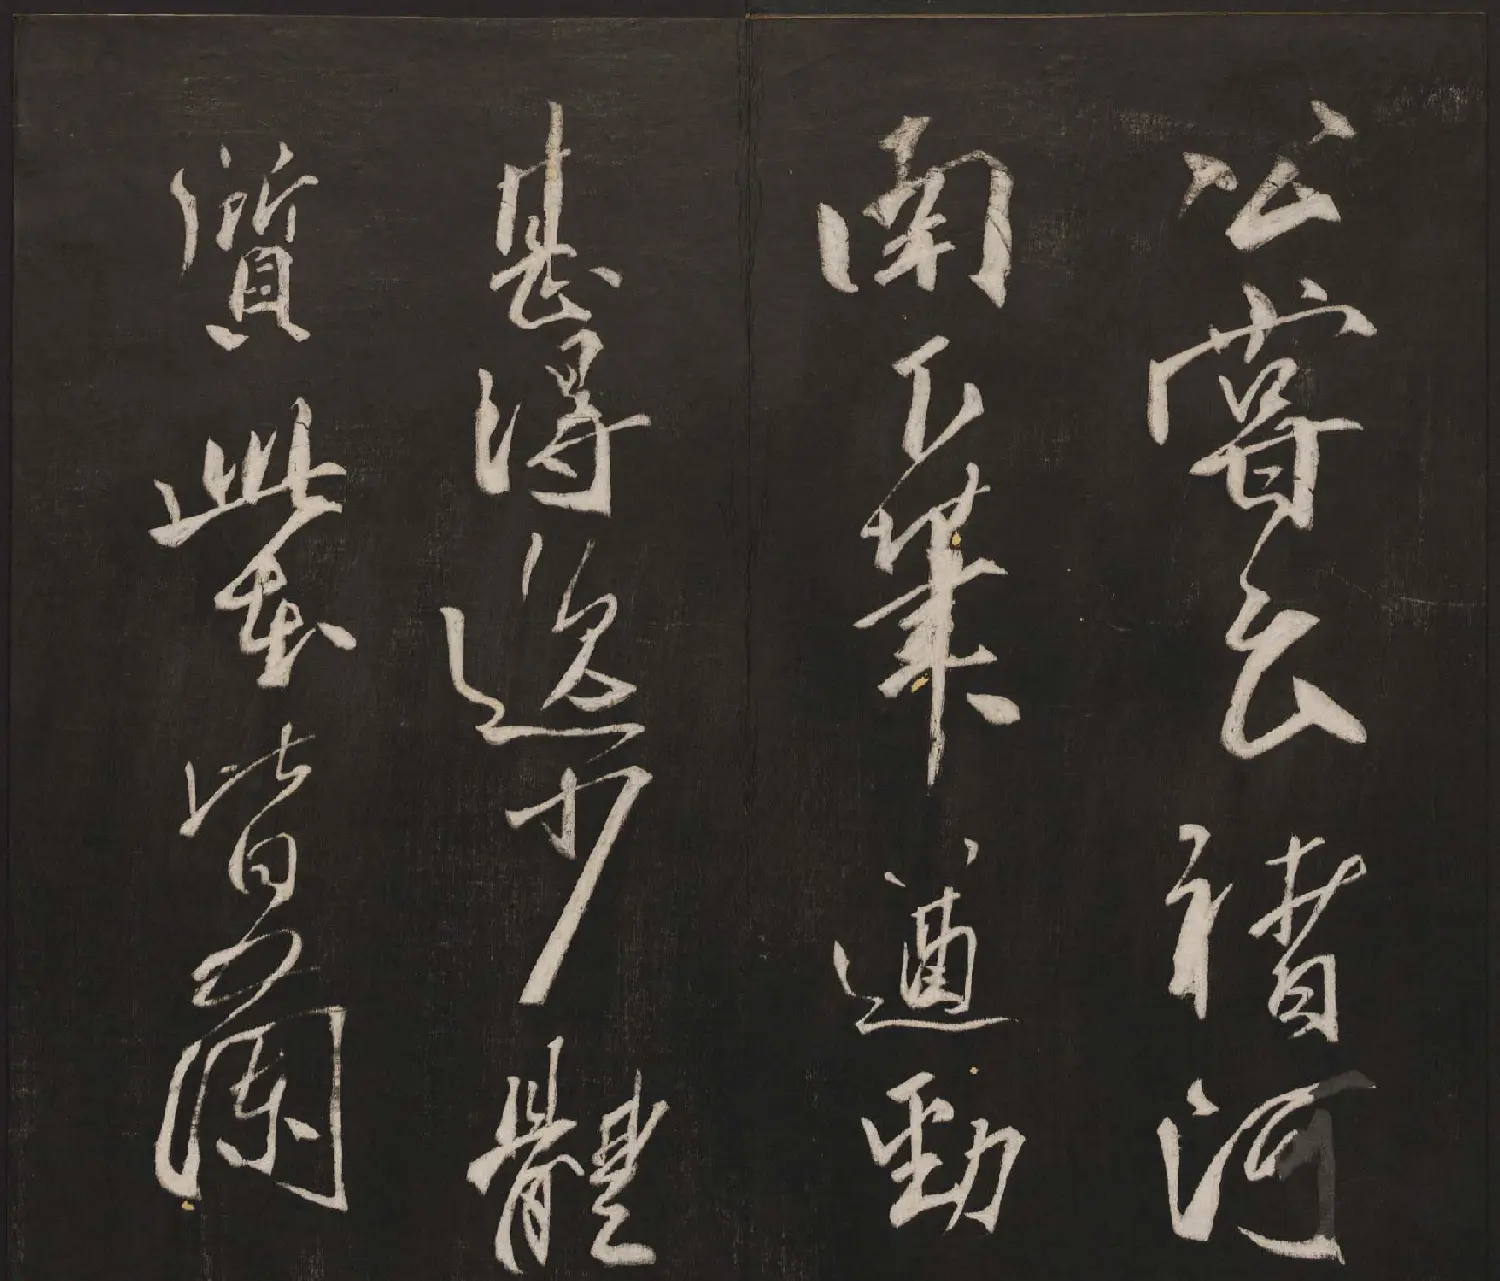 公嘗云褚河
南下筆遒勁
甚得逸少體
質此皆蘭